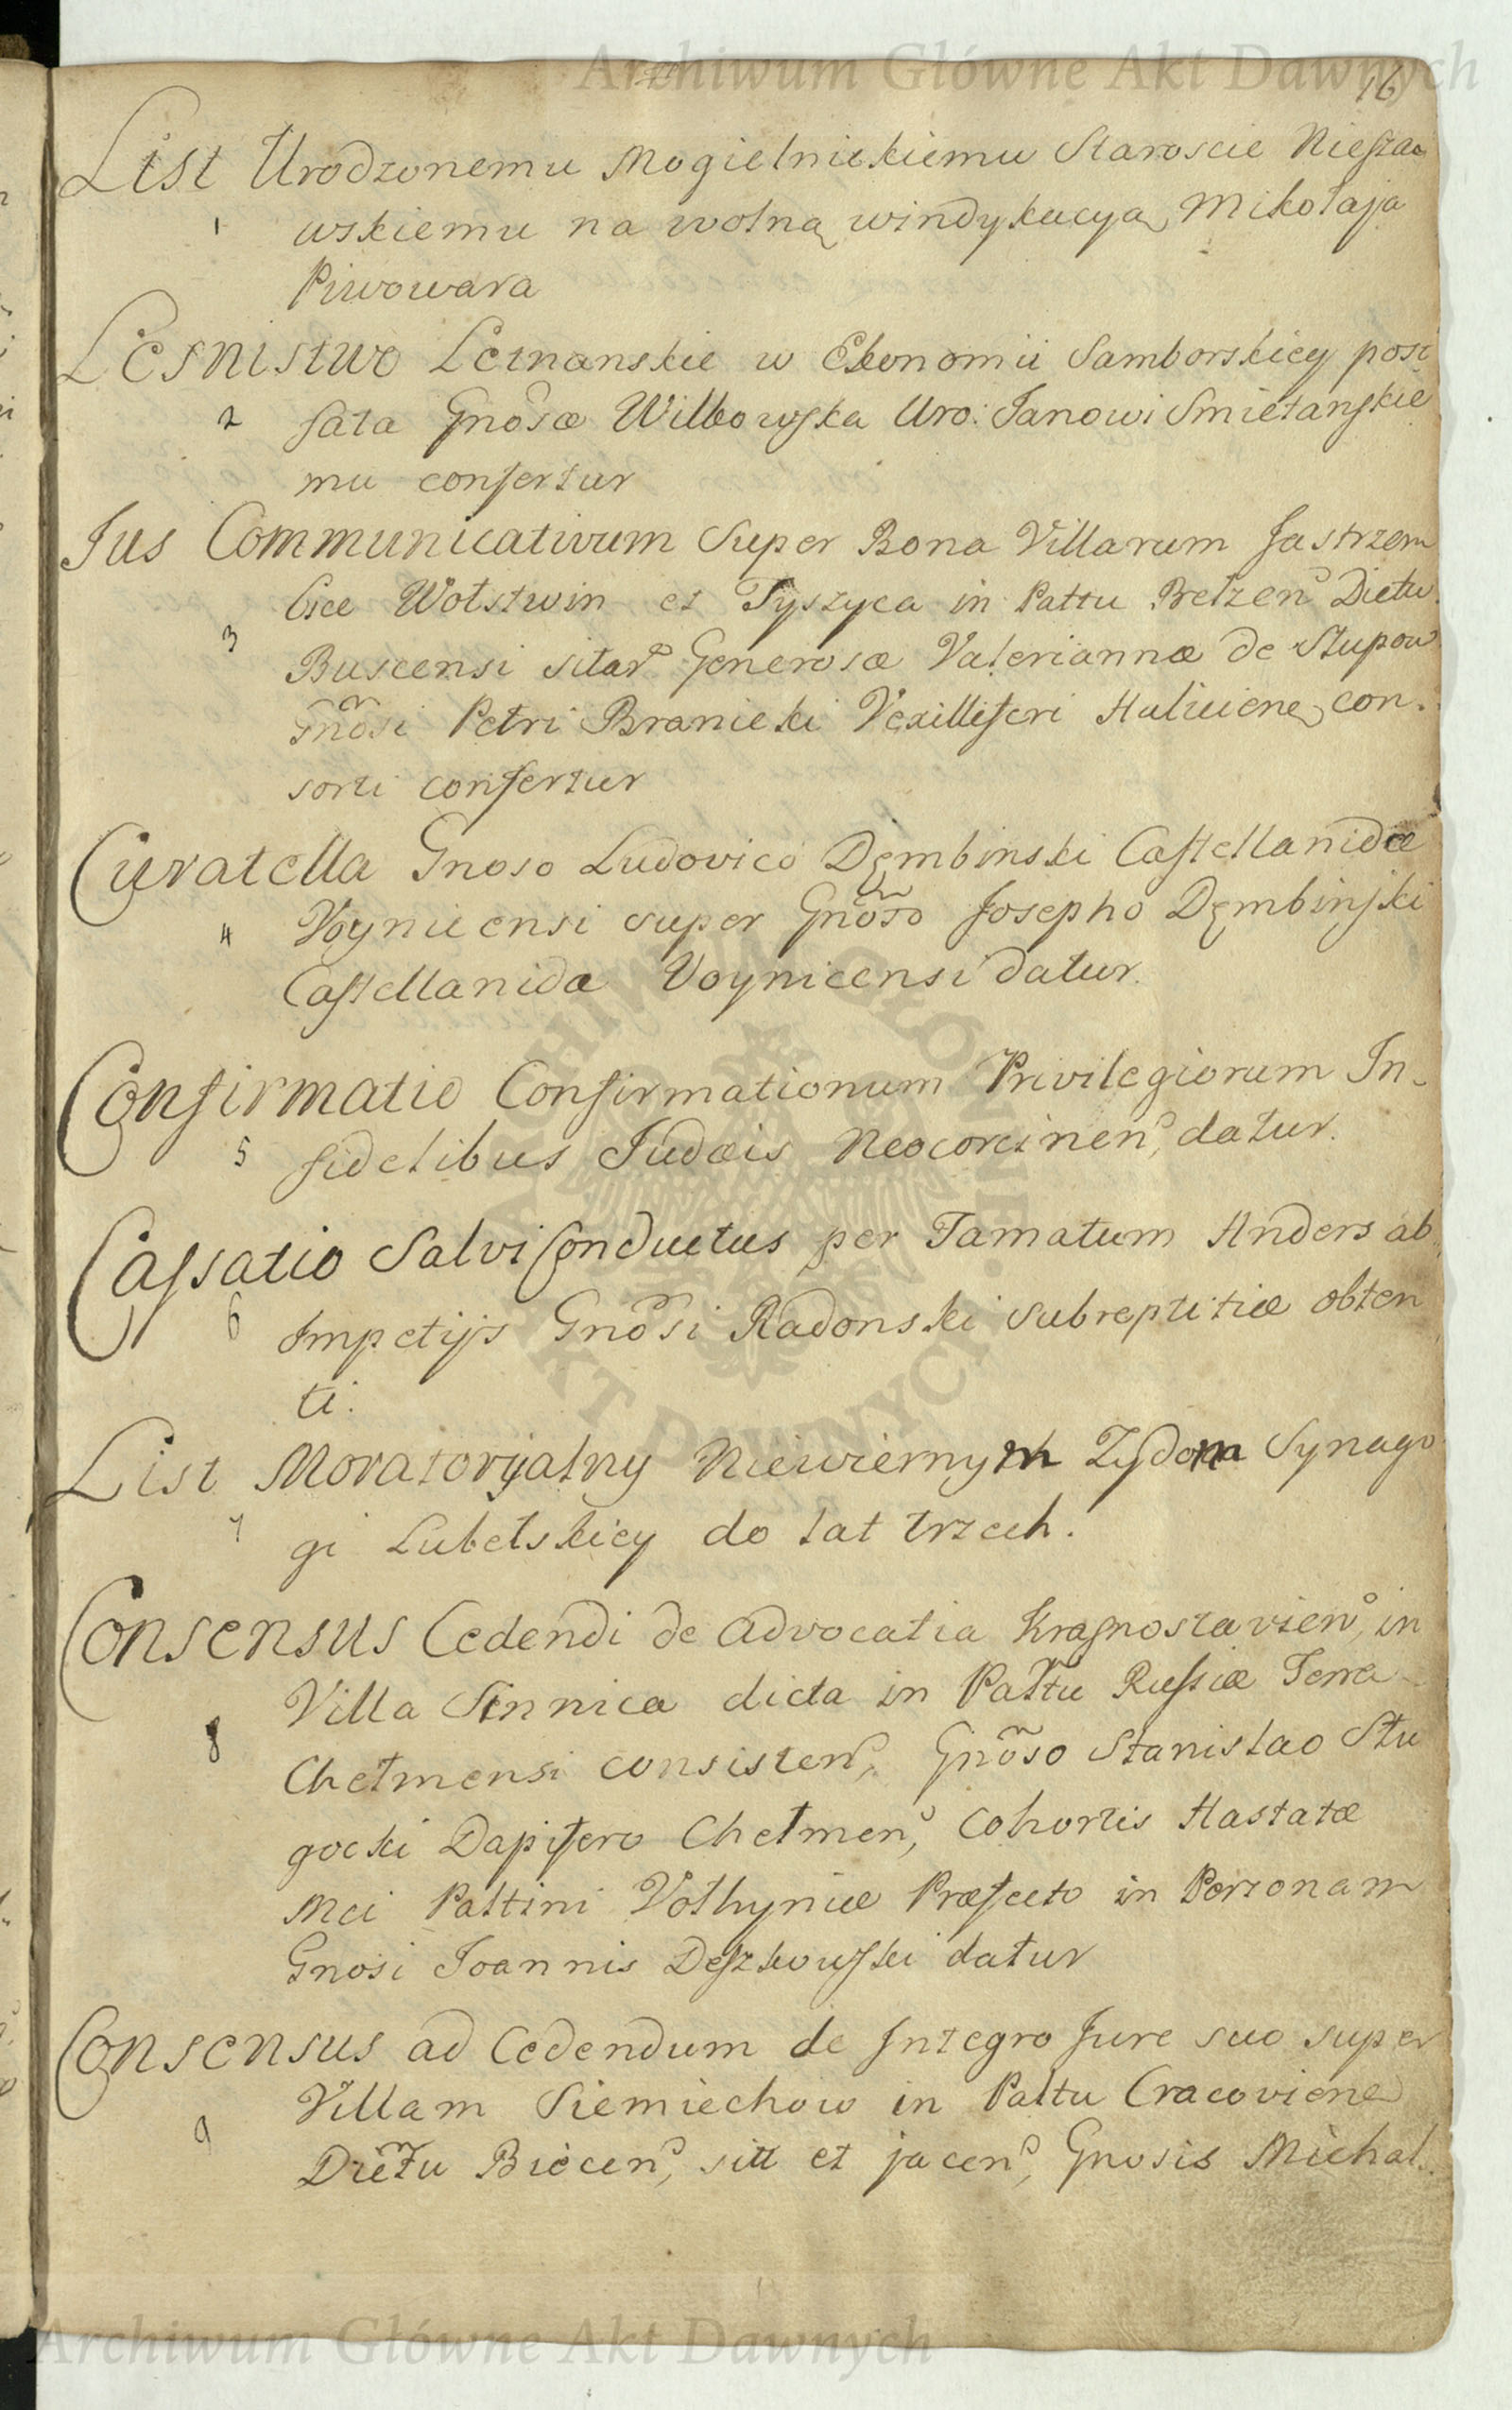 Archiwum Główne Akt Dawnych
16
List Urodzonemu Mogielnickiemu Staroscie Nieszaa
1 wskiemu na wolną windykacyą Mikołaja
Piwowara
Lesnistwo Letnanskie w Ekonomii Samborskiey post
2 fata Gnosæ Wilkowska Uro: Janowi Smietanskie
mu confertur
Jus Communicativum Super Bona Villarum Jastrzem
bice Wolstwin et Tyszyca in Pattu Belzen Dictu
3 Buscensi sitar Generosæ Valeriannæ de Stupow
Gnosi Petri Branicki Vexilliferi Haliciene con.
sorti confertur
Curatella Gnoso Ludovico Dęmbinski Castellanidæ
4 Voynicensi super Gnoso Josepho Dęmbinski
Castellanida Voynicensi datur.
Confirmatio Confirmationum Privilegiorum In-
5 fidelibus Judæis Neocorcinen, datur.
Cassatio Salvi Conductus per Famatum Anders ab
6 Impetijs Gnosi Radonski subreptitiæ obten
ti.
List Moratoryalny Niewiernym Zydom Synago
7 gi Lubelskiey do lat trzech.
Consensus Cedendi de Advocatia Krasnostavien, in
Villa Sinnica dicta in Pattu Russiæ Terra
8 Chelmensi consisten, Gnoso Stanislao Stu
gocki Dapifero Chelmen, Cohortis Hastatæ
Mci Paltini Volhyniæ Præfecto in Personam
Gnosi Joannis Deszkowski datur
Consensus ad Cedendum de Integro Jure suo super
Villam Siemiechow in Paltu Cracoviene
9 Dictu Biecen, sitt et jacen, Gnosis Michal.
Archiwum Główne Akt Dawnych
ARCHIWUM GŁÓWNE AKT DAWNYCH